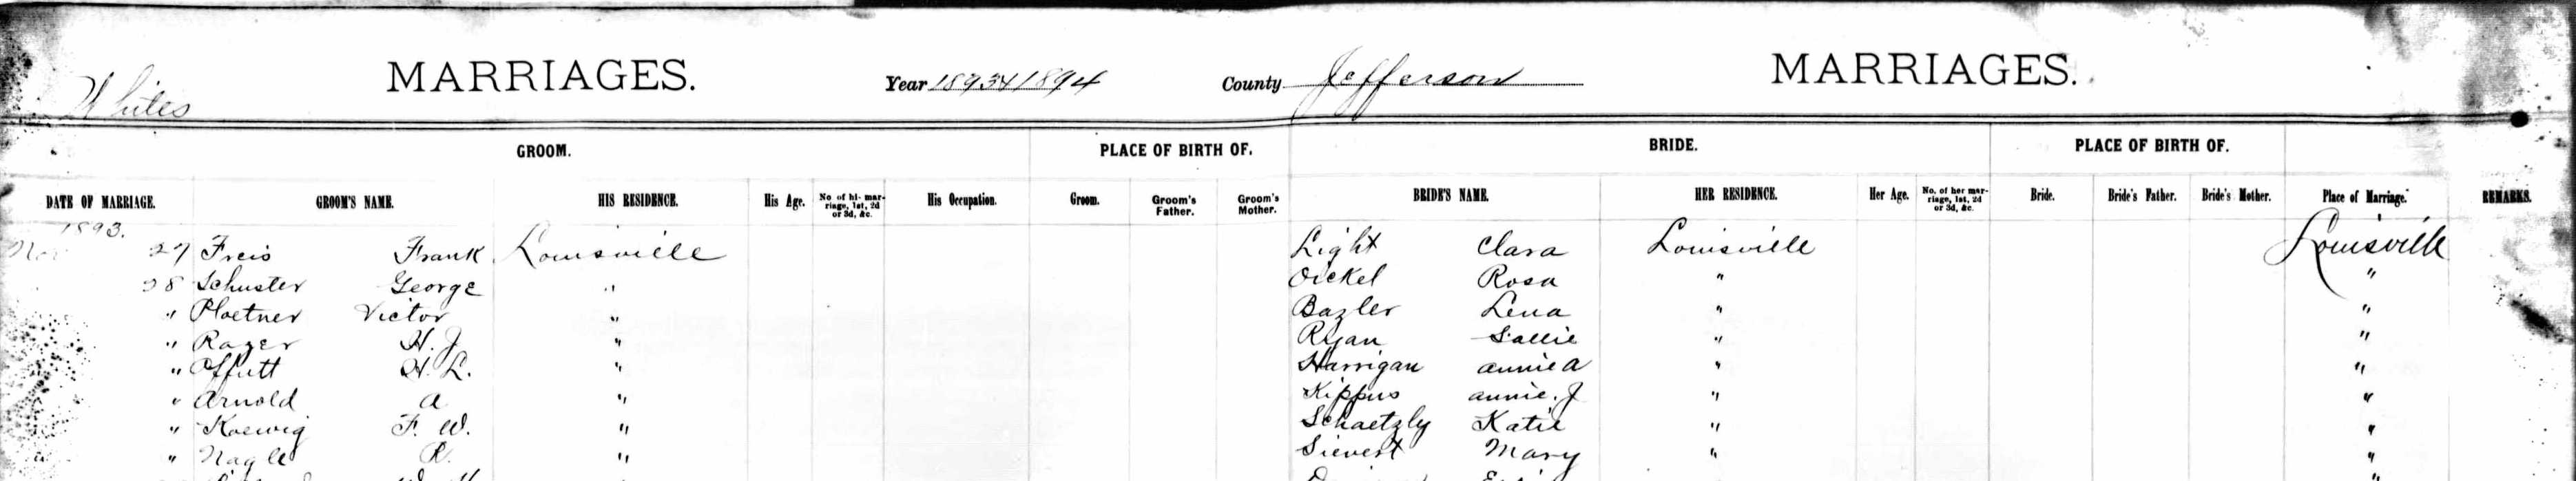 Whites
MARRIAGES. Year 1893 & 1894 County Jefferson MARRIAGES.
GROOM. PLACE OF BIRTH OF. BRIDE. PLACE OF BIRTH OF.
DATE OF MARRIAGE. GROOM'S NAME. HIS RESIDENCE. His Age. No of his marriage, 1st, 2d or 3d, &c. His Occupation. Groom. Groom's Father. Groom's Mother. BRIDE'S NAME. HER RESIDENCE. Her Age. No. of her marriage, 1st, 2d or 3d, &c. Bride. Bride's Father. Bride's Mother. Place of Marriage. REMARKS.
1893.
Nov 27 Freis Frank Louisville Light Clara Louisville Louisville
28 Schuster George " Oickel Rosa " "
" Ploetner Victor " Bazler Lena " "
" Rager H. J " Ryan Sallie " "
" Offutt H. L. " Harrigan annie a " "
" Arnold a " Kippus annie. J " "
" Koewig F. W. " Schaetzly Katie " "
" Nagle R. " Sievert Mary " "